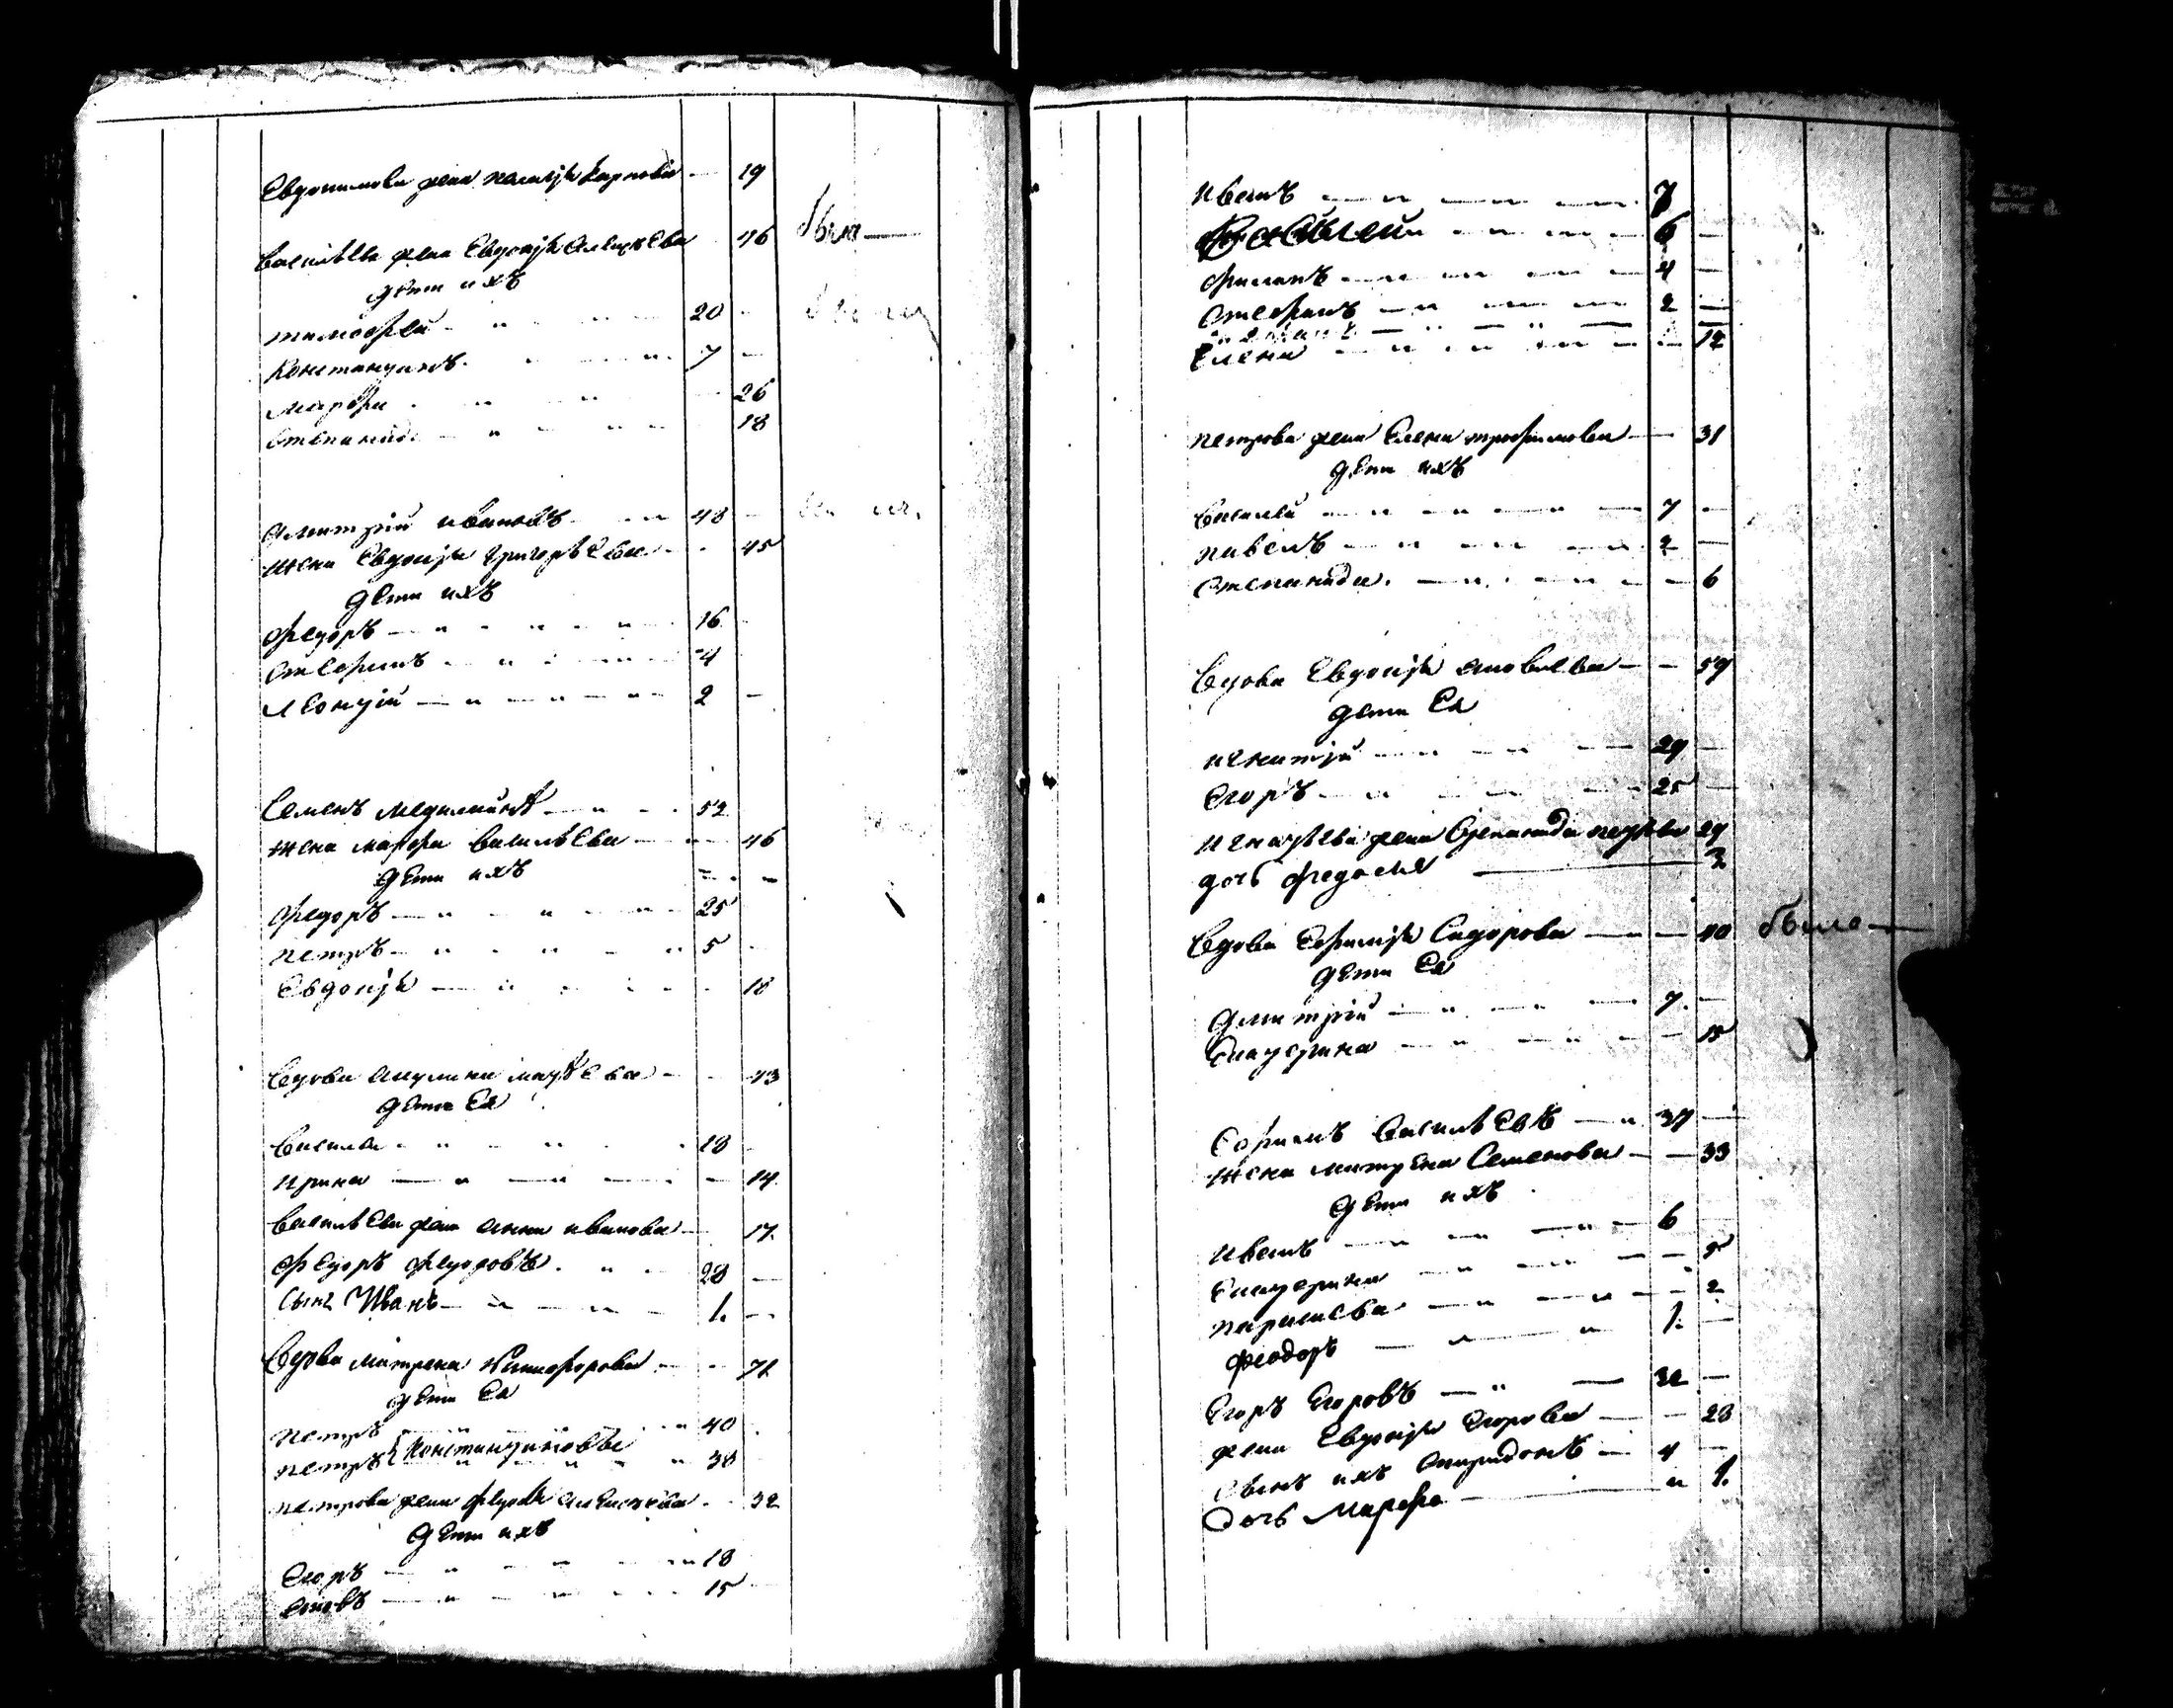 Евдокимова жена Пелагѣя Карпова — 19
Васильева жена Евдокѣя Алексѣева 46 были —
дѣти ихъ
Тимофей 20
Константинъ 7
Марфа 26
Степанида 18
Дмитрій Ивановъ 48
Жена Евдокѣя Григорьева 45
дѣти ихъ
Федоръ 16
Стефанъ 4
Леонтій 2
Семенъ 52
Жена Марфа Васильева 46
дѣти ихъ
Федоръ 25
Петръ 5
Евдокѣя 18
Вдова Акулина Матвѣева 43
дѣти Ея
Василей 18
Ирина 14
Васильева жена Анна Иванова 17
Федоръ Федоровъ 28
Сынъ Иванъ 1.
Вдова Матрена Никифорова 71
дѣти Ея
Петръ 40
Петръ Константиновы 38
Петрова жена Федосья Алексѣева 32
дѣти ихъ
Егоръ 18
Яковъ 15
Иванъ 7
6
Филипъ 4
Стефанъ 2
Елена 12
Петрова жена Елена Трофимова 31
дѣти ихъ
Василей 7
Павелъ 2
Степанида 6
Вдова Евдокѣя 59
дѣти Ея
Игнатій 29
Егоръ 25
Игнатьева жена Степанида Петрова 29
дочь Федосья 3
Вдова Ефимія Сидорова 40 была —
дѣти Ея
Дмитрій 7
Екатерина 15
Ефимъ Васильевъ 37
Жена Матрена Семенова 33
дѣти ихъ
Иванъ 6
Екатерина
Парасева 2
Феодоръ 1.
Егоръ Егоровъ 32
жена Евдокѣя Егорова 28
Сынъ ихъ Спиридонъ 4
Дочь Марфа 1.